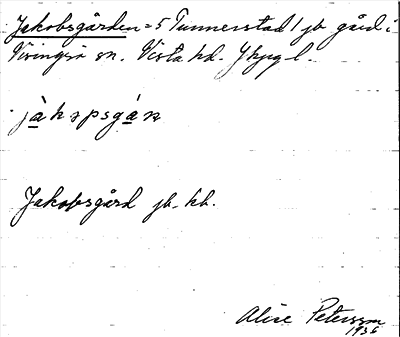 Jakobsgården = 5 Tunnerstad 1 jb gård i
Visingsö sn. Vista hd. Jkpg l.
jàkɔpsgán
Jakobsgård jb. kb.
Alice Petersson
1936